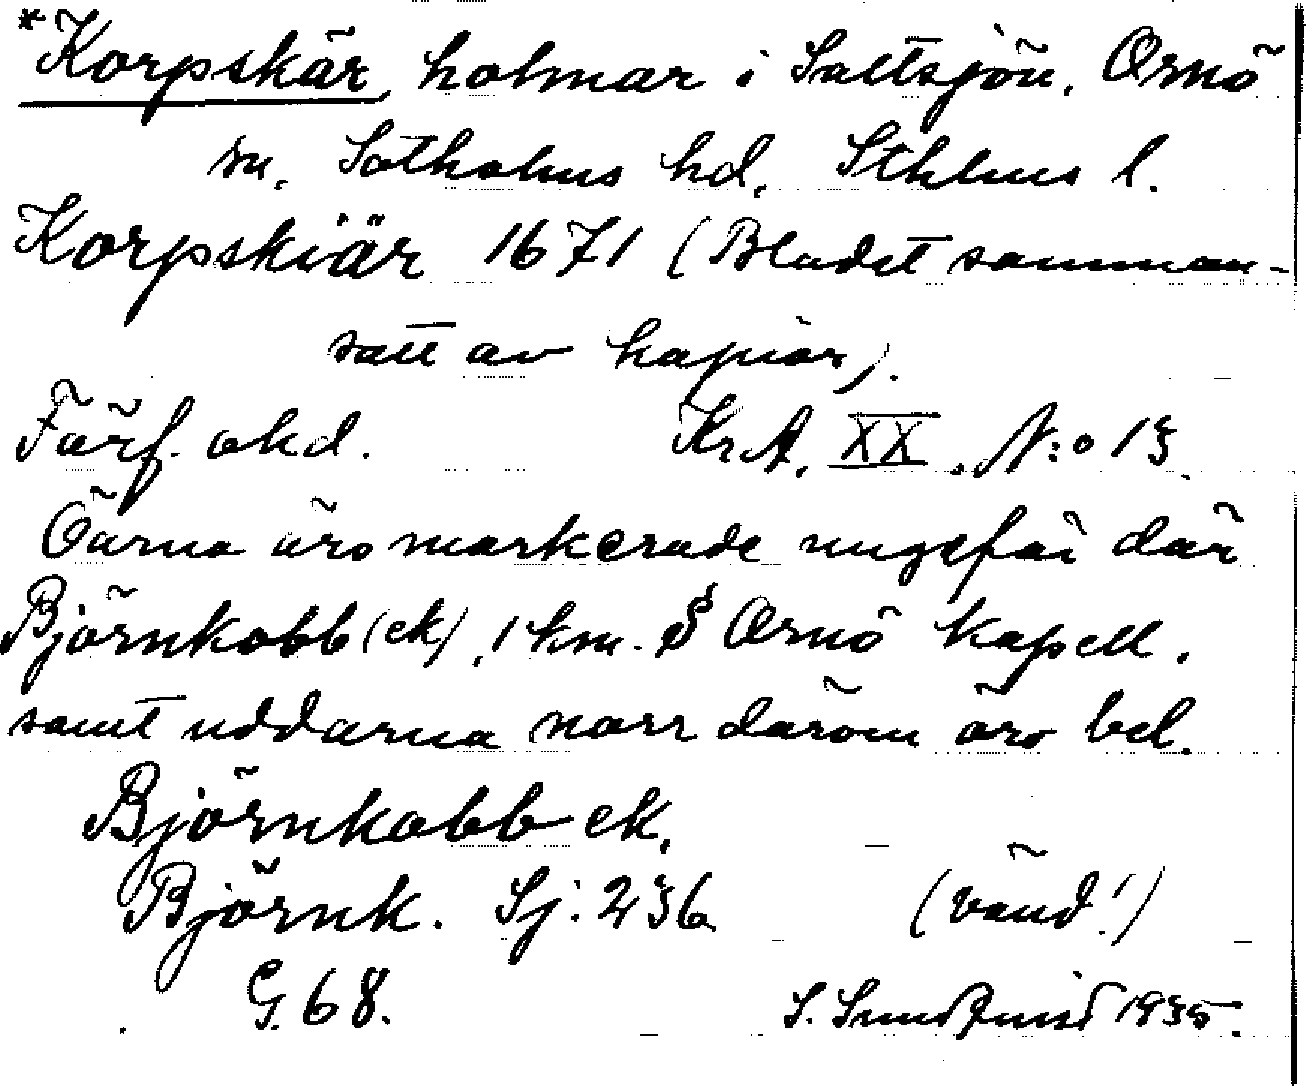 *Korpskär, holmar i Saltsjön, Ornö
sn, Sotholms hd, Sthlms l.
Korpskiär 1671 (Bladet samman-
satt av kopior).
Förf. okd. Kr.A. XX. N:o 13.
Öarna äro markerade ungefär där
Björnkobb(ek), 1 km. S Ornö kapell,
samt uddarna norr därom äro bel.
Björnkobb ek,
Björnk. Sj: 236
G. 68.
(vänd!)
S. Sundqvist 1935.